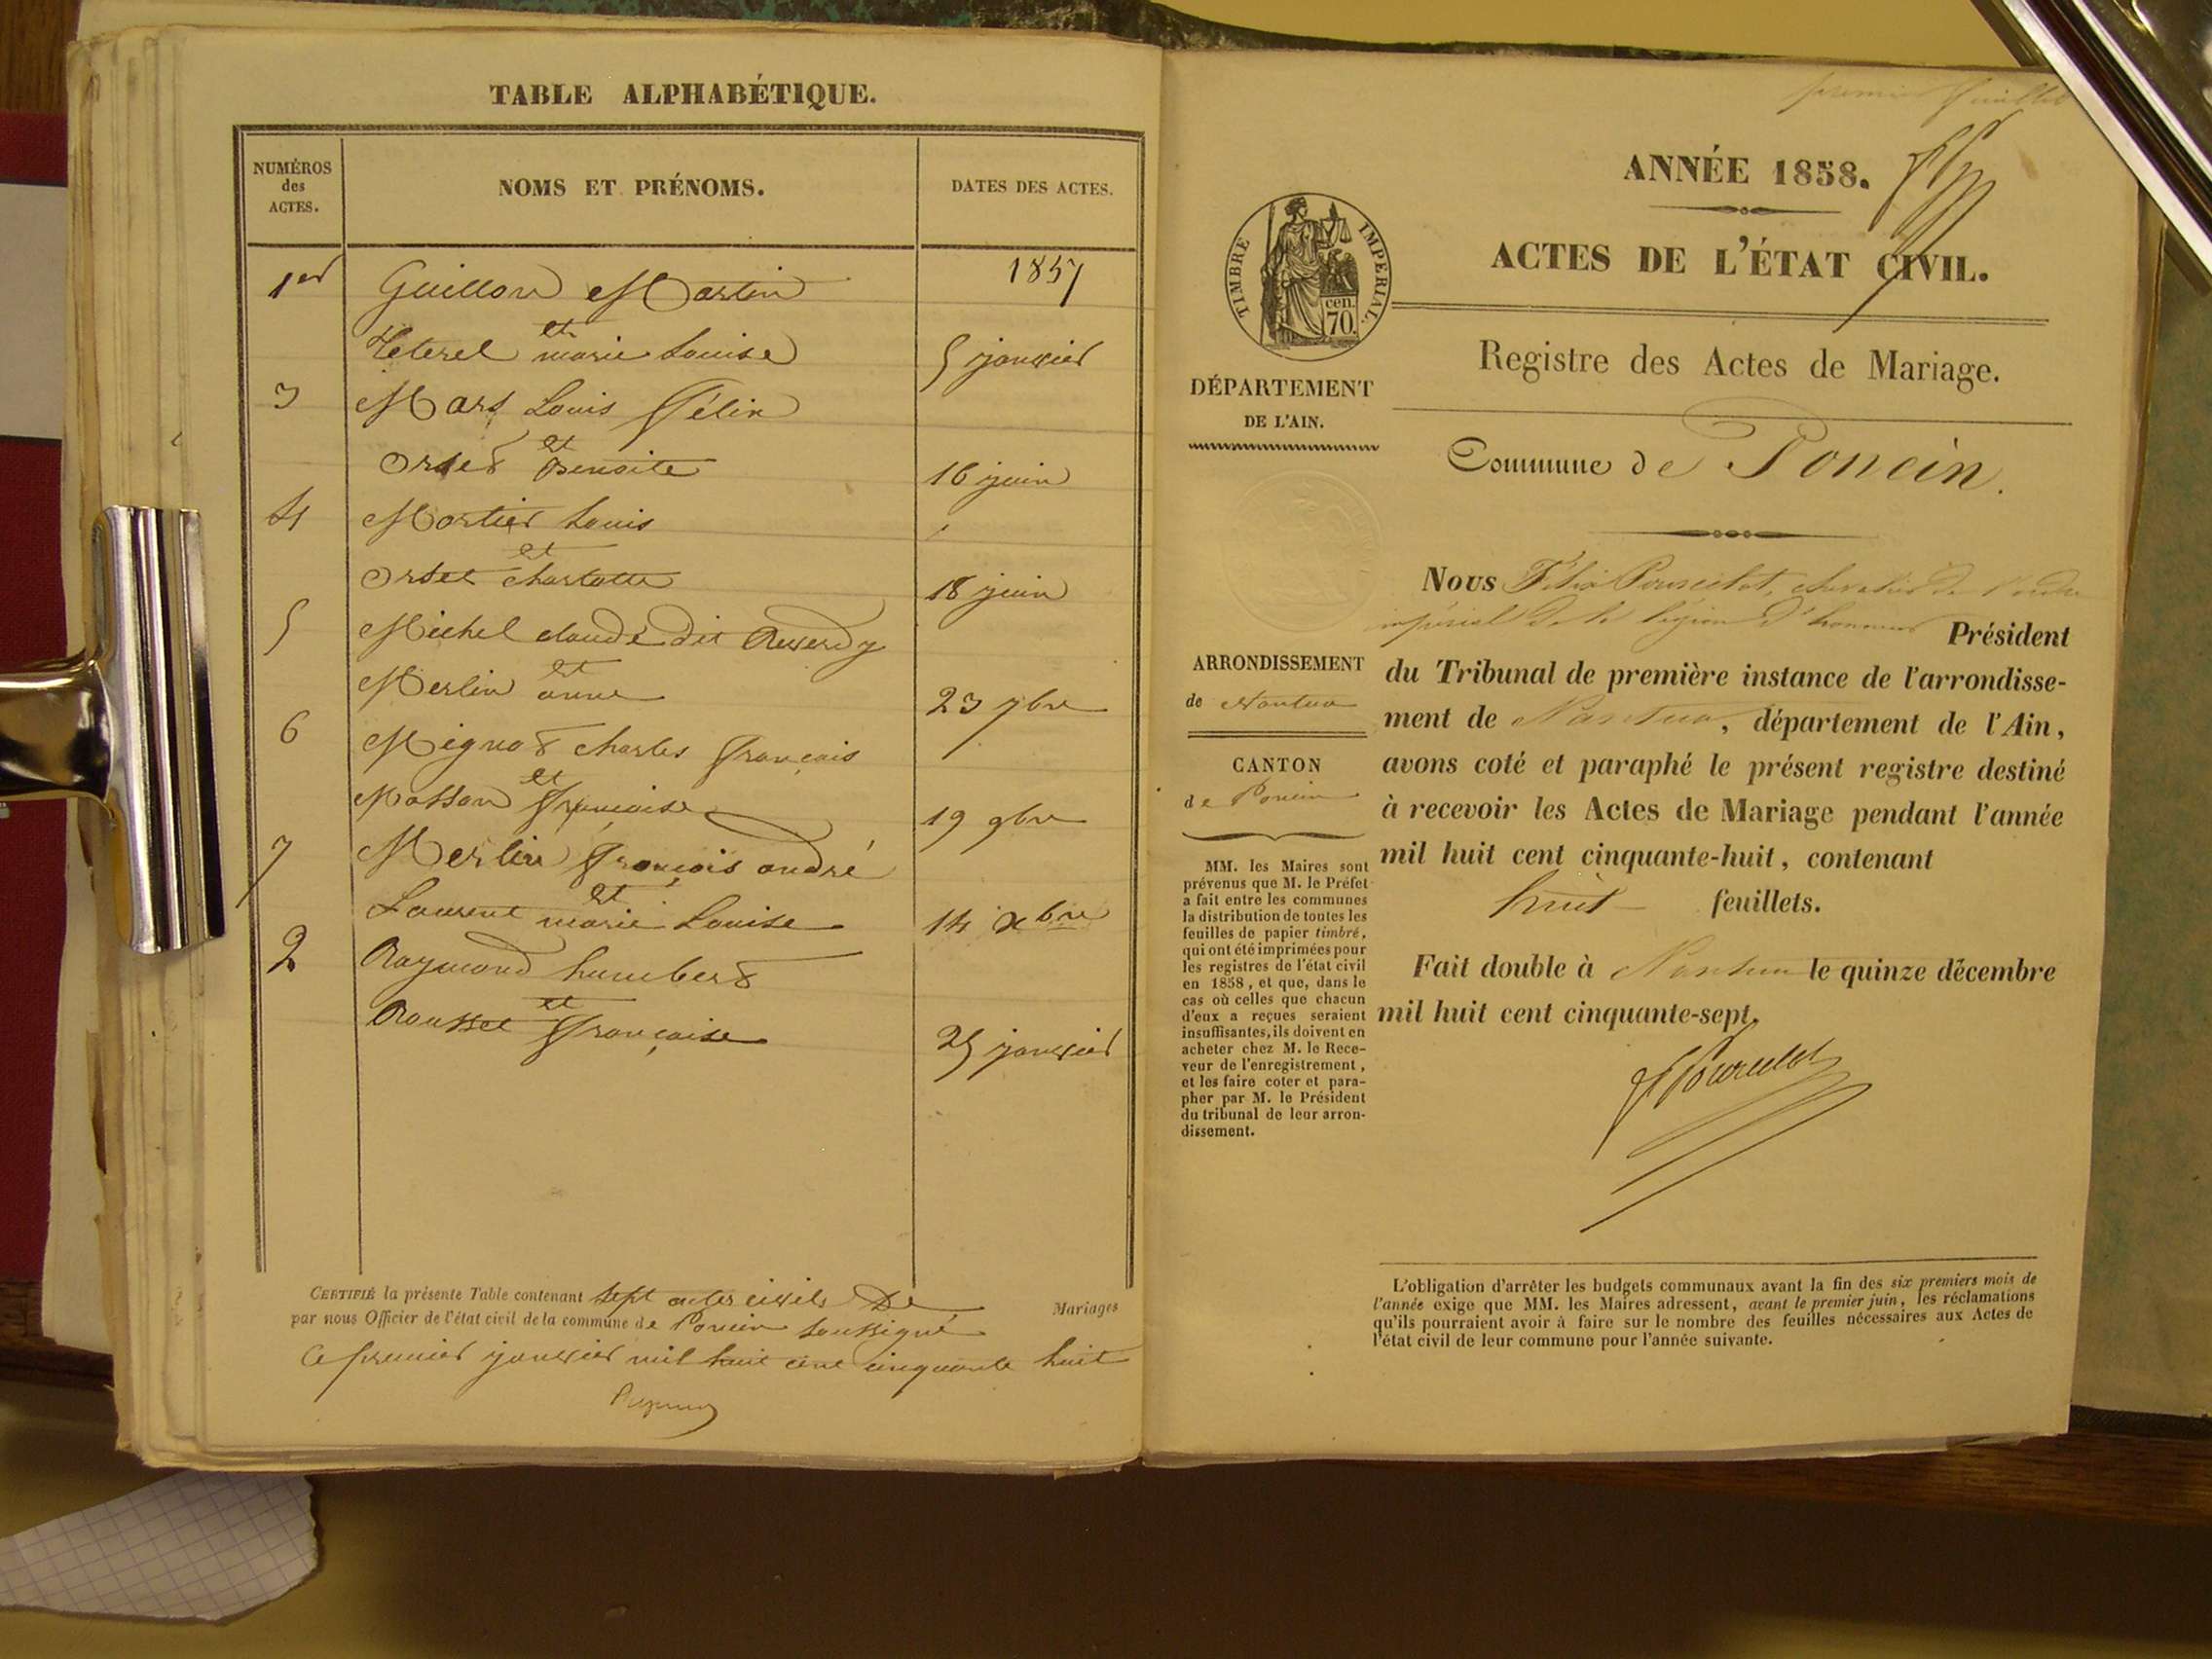 TABLE ALPHABÉTIQUE.
NUMÉROS
des
ACTES.
NOMS ET PRÉNOMS.
DATES DES ACTES.
1857
1er Guillon Martin
et
marie Louise 5 janvier
3 Mars Louis Félix
et
Orset Benoite 16 juin
4 Mortier Louis
et
Orset charlotte 18 juin
5 Michel claude dit
et
Merlin anne 23 7bre
6 Mignot charles françois
et
Masson françoise 19 9bre
7 Merlin françois andré
et
Laurent marie Louise 14 xbre
2 Raymond humbert
et
Rousset françoise 25 janvier
CERTIFIÉ la présente Table contenant sept actes civils De Mariages
par nous Officier de l'état civil de la commune de Poncin soussigné
Ce premier janvier mil huit cent cinquante huit
premier feuillet
ANNÉE 1858.
ACTES DE L'ÉTAT CIVIL.
Registre des Actes de Mariage.
Commune de Poncin.
TIMBRE IMPERIAL.
cen.
70.
DÉPARTEMENT
DE L'AIN.
ARRONDISSEMENT
de Nantua
CANTON
de Poncin
MM. les Maires sont
prévenus que M. le Préfet
a fait entre les communes
la distribution de toutes les
feuilles de papier timbré,
qui ont été imprimées pour
les registres de l'état civil
en 1858, et que, dans le
cas où celles que chacun
d'eux a reçues seraient
insuffisantes, ils doivent en
acheter chez M. le Rece-
veur de l'enregistrement,
et les faire coter et para-
pher par M. le Président
du tribunal de leur arron-
dissement.
Nous Félix chevalier de l'ordre
impérial de la légion d'honneur Président
du Tribunal de première instance de l'arrondisse-
ment de Nantua, département de l'Ain,
avons coté et paraphé le présent registre destiné
à recevoir les Actes de Mariage pendant l'année
mil huit cent cinquante-huit, contenant
huit feuillets.
Fait double à Nantua le quinze décembre
mil huit cent cinquante-sept.
L'obligation d'arrêter les budgets communaux avant la fin des six premiers mois de
l'année exige que MM. les Maires adressent, avant le premier juin, les réclamations
qu'ils pourraient avoir à faire sur le nombre des feuilles nécessaires aux Actes de
l'état civil de leur commune pour l'année suivante.